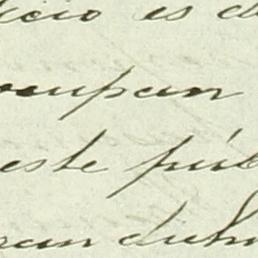 icio es d
ocupan
este púb
ran dich